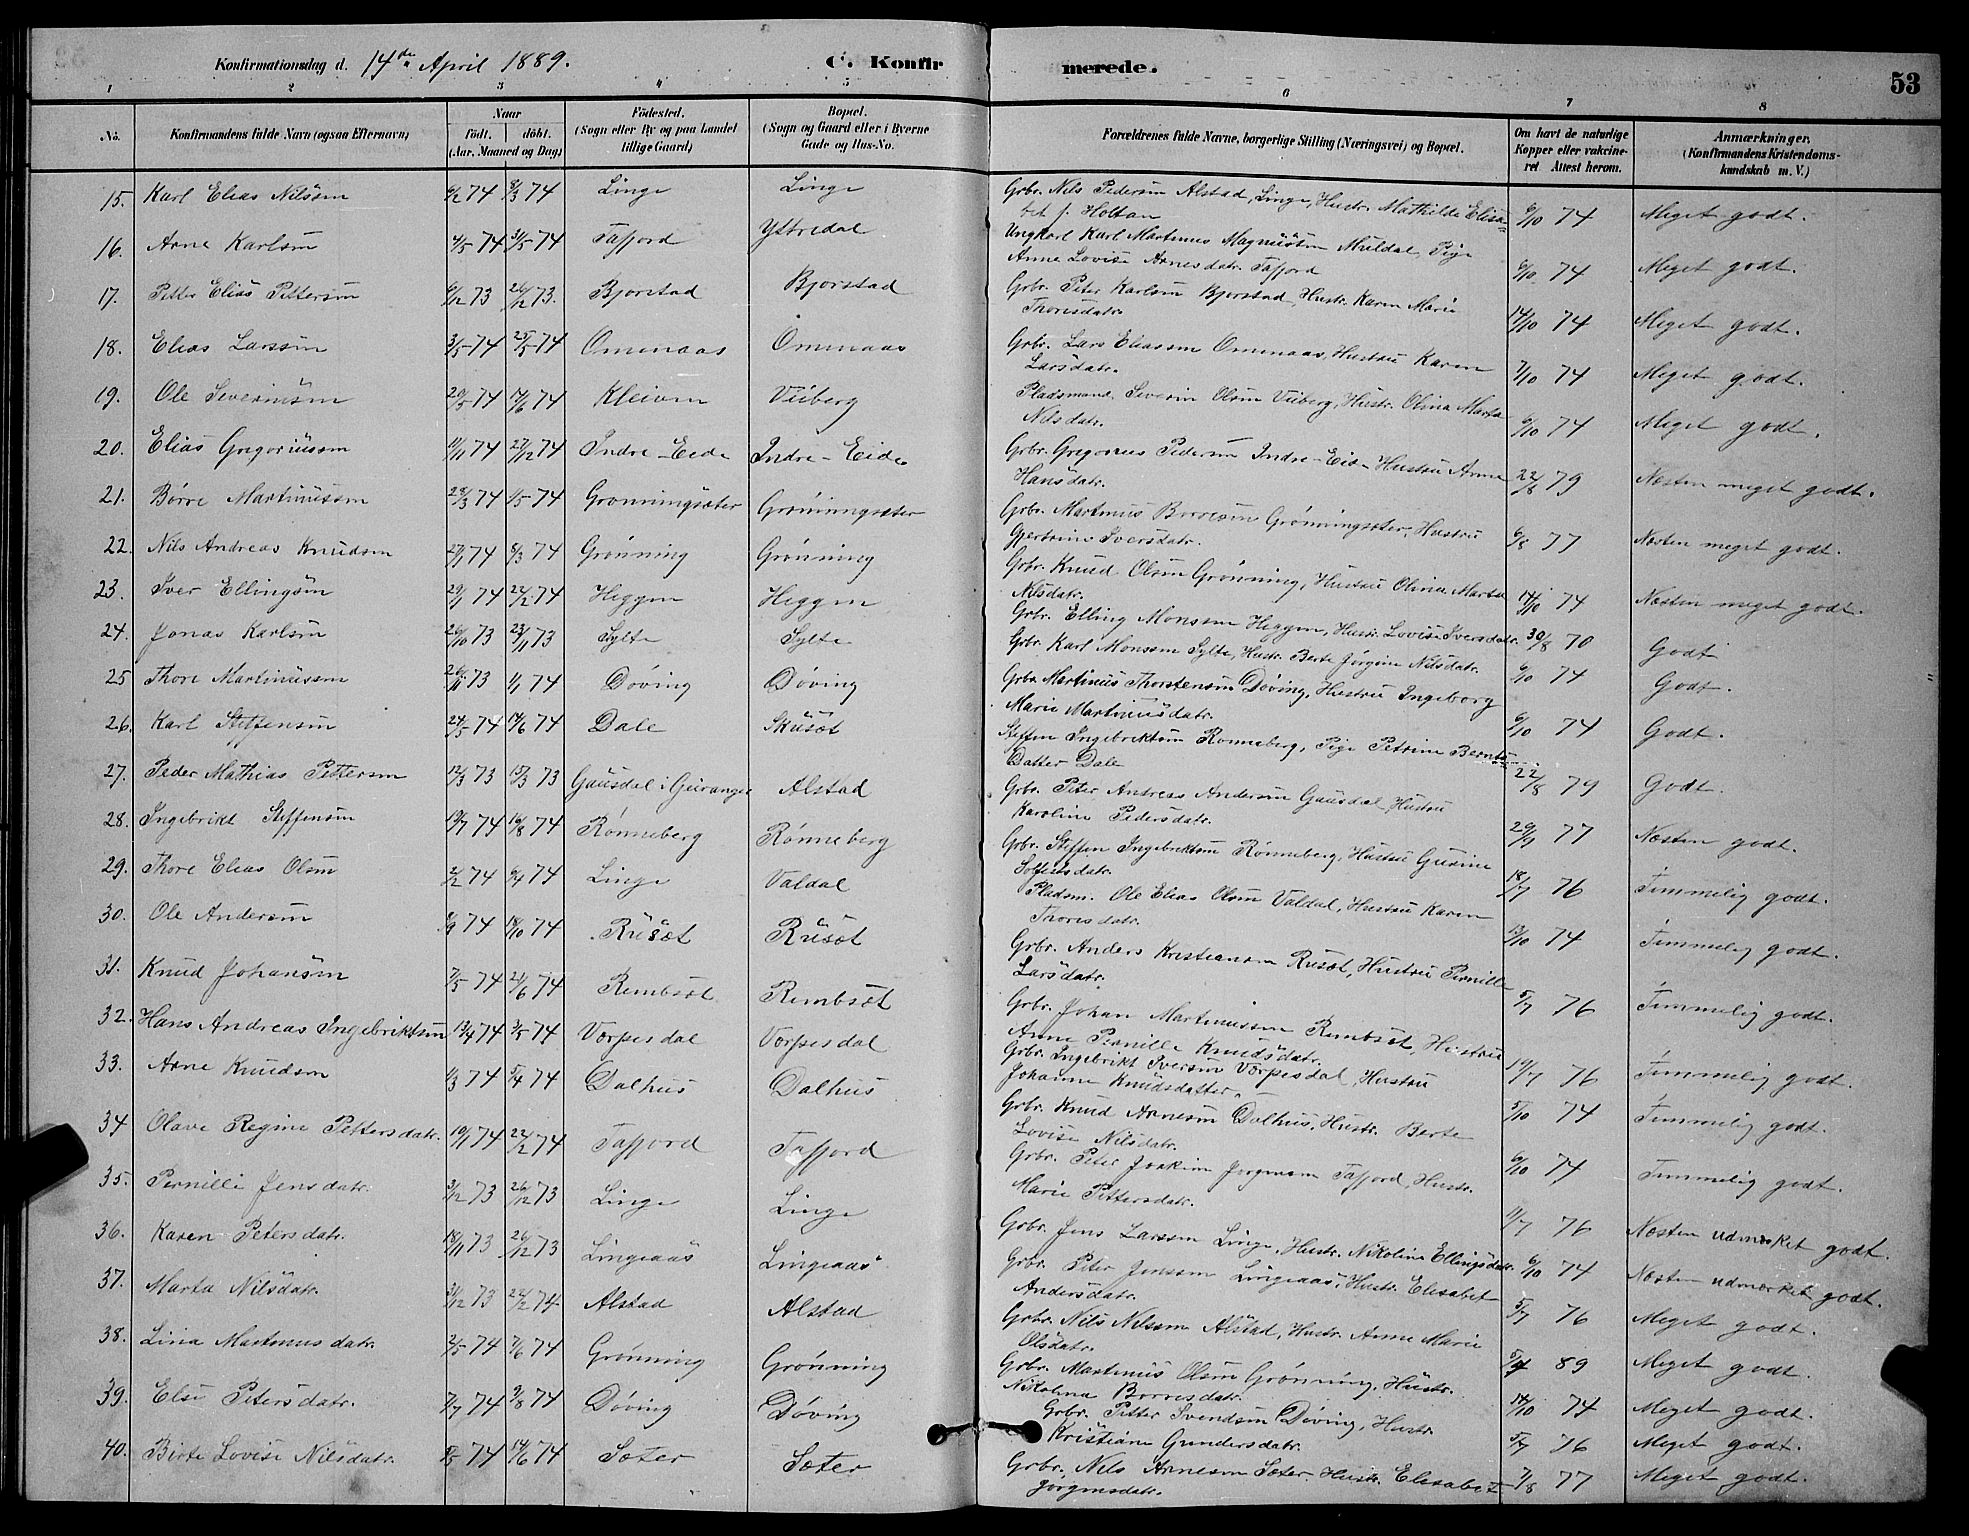 Konfirmationsdag d. 14de April 1889. C. Konfir merede. 53
1 2 3 4 5 6 7 8
No. Konfirmandens fulde Navn (ogsaa Efternavn) Naar født. døbt. (Aar, Maaned og Dag) Fødested. (Sogn eller By og paa Landet tillige Gaard) Bopæl. (Sogn og Gaard eller i Byerne Gade og Hus-No. Forældrenes fulde Navne, borgerlige Stilling (Næringsvei) og Bopæl. Om havt de naturlige Kopper eller vakcineret Attest herom. Anmærkninger. (Konfirmandens Kristendomskundskab m. V.)
15. Karl Elias Nilssøn 6/2 74 8/3 74 Linge Linge Grbr. Nils Pedersøn Alstad, Linge, Hustr. Mathilde Elisabet f. Holtan 6/10 74 Meget godt.
16. Arne Karlsøn 4/5 74 31/5 74 Tafjord Ytredal Ungkarl Karl Martinus Magnussøn Muldal, Pige Anne Lovise Arnesdatr. Tafjord 6/10 74 Meget godt.
17. Petter Elias Pettersøn 6/12 73 26/12 73. Bjorstad Bjorstad Grbr. Peter Karlsøn Bjorstad, Hustr. Karen Marie Thoresdatr. 14/10 74 Meget godt.
18. Elias Larssøn 3/5 74 25/5 74 Omenaas Omenaas Grbr. Lars Eliassøn Omenaas, Hustru Karen Larsdatr. 7/10 74 Meget godt.
19. Ole Severinsøn 20/5 74 14/6 74 Kleiven Viiberg Pladsmand. Severin Olsøn Viiberg, Hustr. Olina Marta Nilsdatr. 6/10 74 Meget godt.
20. Elias Gregoriussøn 11/11 74 27/12 74 Indre-Eide Indre-Eide Grbr. Gregorius Pedersøn Indre-Eide Hustru Anne Hansdatr. 22/8 79 Næsten meget godt.
21. Børre Martinussøn 28/3 74 1/5 74 Grønningsæter Grønningsæter Grbr. Martinus Børresøn Grønningsæter, Hustru Gjertrine Iversdatr. 6/8 77 Næsten meget godt.
22. Nils Andreas Knudsøn 27/1 74 8/3 74 Grønning Grønning Grbr. Knud Olsøn Grønning, Hustru Olina Marta Nilsdatr. 14/10 74 Næsten meget godt.
23. Iver Ellingsøn 29/1 74 24/2 74 Heggen Heggen Grbr. Elling Monssøn Heggen, Hustr. Lovise Iversdatr. 30/8 70 Godt
24. Jonas Karlsøn 26/10 73 23/11 73 Sylte Sylte Grbr. Karl Monssøn Sylte, Hustr. Berte Jørgine Nilsdatr. 6/10 74 Godt.
25 Thore Martinussøn 26/11 73 1/1 74 Døving Døving Grbr. Martinus Thorstensøn Døving, Hustru Ingeborg Marie Martinusdatr. 6/10 74 Godt.
26. Karl Steffensøn 24/5 74 14/6 74 Dale Skusæt Steffen Ingebriktsøn Rønneberg, Pige Petrine Berntsdatter Dale 22/8 79 Godt.
27. Peder Mathias Pettersøn 12/3 73 15/3 73 Gausdal i Geiranger Alstad Grbr. Peter Andreas Andersøn Gausdal, Hustru Karoline Pedersdatr. 29/9 77 Næsten godt.
28. Ingebrikt Steffensøn 19/7 74 16/8 74 Rønneberg Rønneberg Grbr. Steffen Ingebriktsøn Rønneberg, Hustru Gurine 18/7 76 Timmelig godt.
29. Thore Elias Olsøn 2/2 74 6/4 74 Linge Valdal Pladsm. Ole Elias Olsøn Valdal, Hustru Karen Thoresdatr. 13/10 74 Timmelig godt.
30. Ole Andersøn 8/9 74 18/10 74 Rusæt Rusæt Grbr. Anders Kristiansøn Rusæt, Hustru Pernille Larsdatr. 5/7 76 Timmelig godt.
31. Knud Johansøn 7/5 74 21/6 74 Rembsæt Rembsæt Grbr. Johan Martinussøn Rembsæt, Hustru Anne Pernille Knudsdatr. 19/7 76 Timmelig godt.
32. Hans Andreas Ingebriktsøn 13/4 74 3/5 74 Vorpesdal Vorpesdal Grbr. Ingebrikt Iversøn Vorpesdal, Hustru Johanne Knudsdatter.
33. Arne Knudsøn 1/3 74 5/4 74 Dalhus Dalhus Grbr. Knud Arnesøn Dalhus, Hustr. Berte Lovise Nilsdatr. 5/10 74 Timmelig godt.
34 Olave Regine Pettersdatr. 19/1 74 22/2 74 Tafjord Tafjord Grbr. Peter Joakim Jørgensøn Tafjord, Hustr. Marie Pettersdatr. 6/10 74 Timmelig godt.
35. Pernille Jensdatr. 3/12 73 26/12 73 Linge Linge Grbr. Jens Larssøn Linge, Hustr. Nikoline Ellingsdatr. 11/7 76 Næsten udmærket godt.
36. Karen Petersdatr. 18/11 73 26/12 73 Lingeaas Lingeaas Grbr. Peter Jenssøn Lingeaas, Hustr. Elisabet Andersdatr. 6/10 74 Næsten udmærket godt.
37. Marta Nilsdatr. 31/12 73 22/2 74 Alstad Alstad Grbr. Nils Nilssøn Alstad, Hustr. Anne Marie Olsdatr. 5/7 76 Meget godt.
38. Lina Martinusdatr. 2/5 74 7/6 74 Grønning Grønning Grbr. Martinus Olsøn Grønning, Hustr. Nikolina Børresdatr. 5/4 89 Meget godt.
39. Else Petersdatr. 7/7 74 9/8 74 Døving Døving Grbr. Petter Svendsøn Døving, Hustr. Kristiane Gundersdatr. 14/10 74 Meget godt.
40. Birte Lovise Nilsdatr. 74 14/6 74 Sæter Sæter Grbr. Nils Arnesøn Sæter, Hustr. Elisabet Jørgensdatr. 5/7 76 Meget godt.
7/8 77 Meget godt.